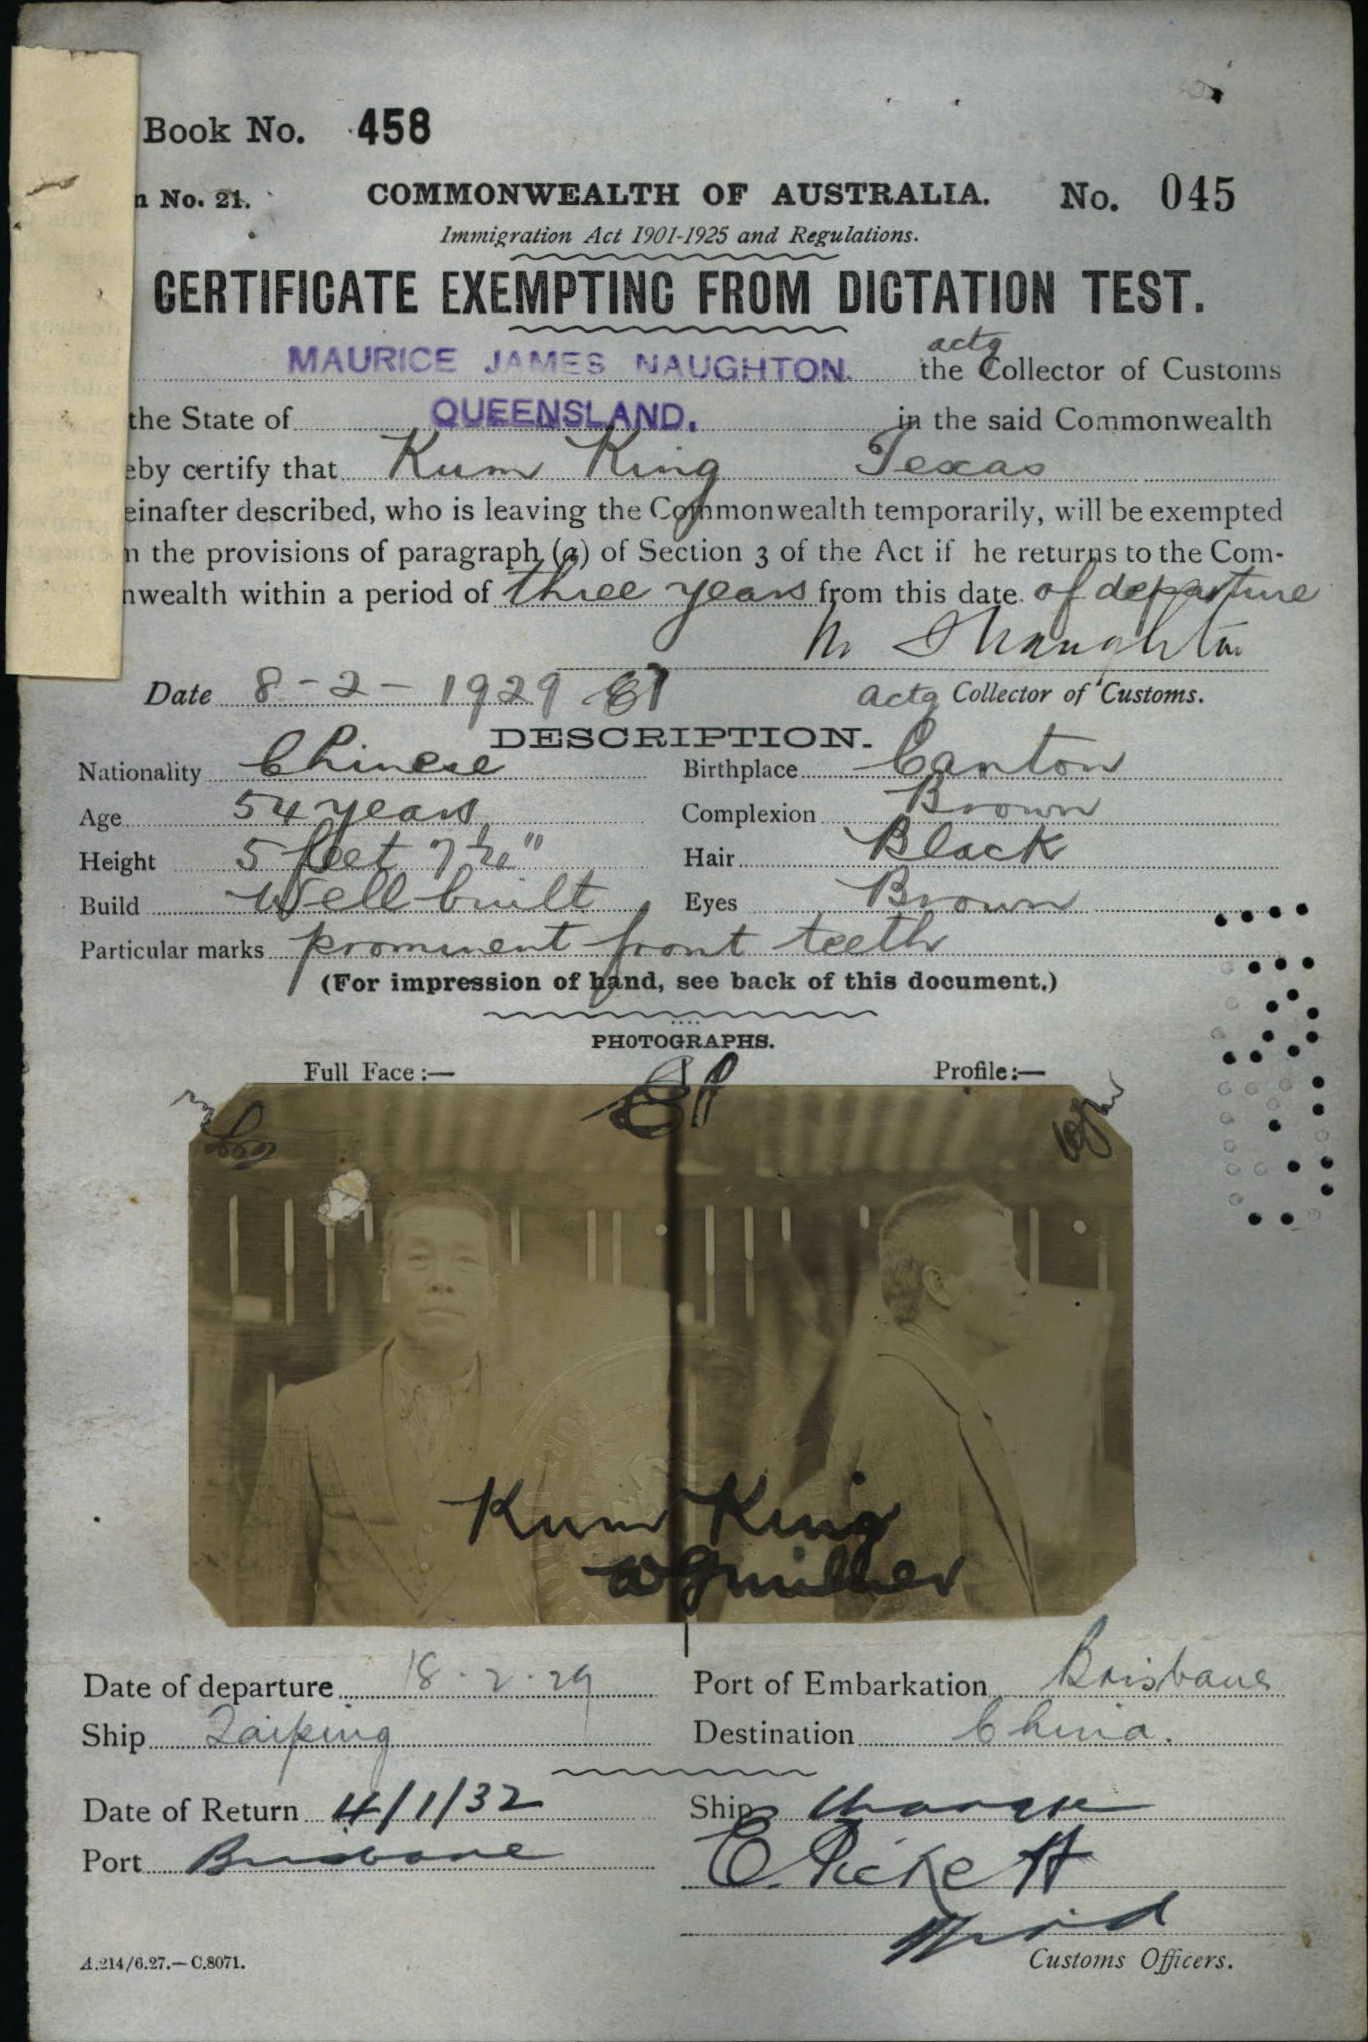 Book No. 458
n No. 21. COMMONWEALTH OF AUSTRALIA. No. 045
Immigration Act 1901-1925 and Regulations.
CERTIFICATE EXEMPTING FROM DICTATION TEST.
MAURICE JAMES NAUGHTON. actg the Collector of Customs
the State of QUEENSLAND. in the said Commonwealth
eby certify that Kum King Texas
einafter described, who is leaving the Commonwealth temporarily, will be exempted
n the provisions of paragraph (a) of Section 3 of the Act if he returns to the Com-
nwealth within a period of three years from this date of departure
M J Naughton
Date 8-2-1929 actg Collector of Customs.
DESCRIPTION.
Nationality Chinese Birthplace Canton
Age 54 years Complexion Brown
Height 5 feet 7 ½" Hair Black
Build Well built Eyes Brown
Particular marks prominent front teeth
(For impression of hand, see back of this document.)
PHOTOGRAPHS.
Full Face:— Profile:—
Kum King
WGmillner
Date of departure 18.2.29 Port of Embarkation Brisbane
Ship Taiping Destination China.
Date of Return 4/1/32 Ship
Port Brisbane E. Pickett
Customs Officers.
A.214/6.27.—C.8071.